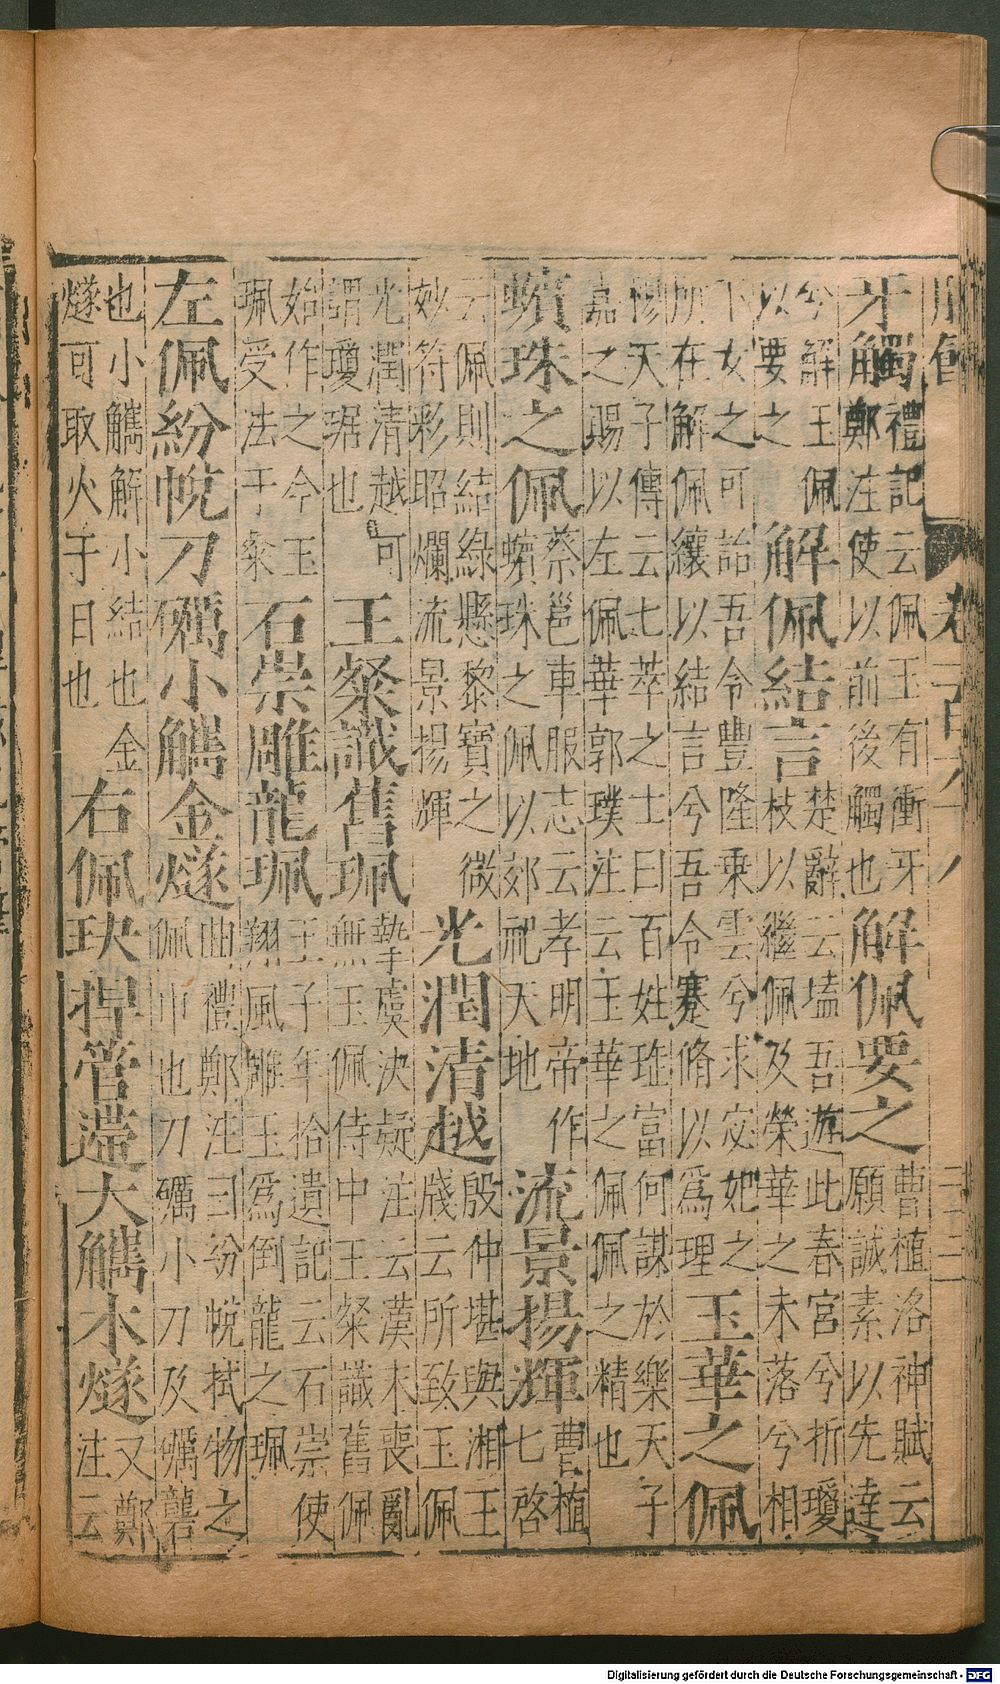 牙觸禮記云佩玉有衝牙鄭注使以前後觸也解佩要之曹植洛神賦云願誠素以先達
兮解玉佩以要之解佩結言楚辭云溘吾遊此春宮兮折瓊枝以繼佩及榮華之未落兮相
下女之可詒吾令豐隆乘雲兮求宓妃之所在解佩纕以結言兮吾令蹇脩以爲理玉華之佩
穆天子傳云七萃之士曰百姓珤富何謀於樂天子嘉之賜以左佩華郭璞注云玉華之佩佩之精也
蠙珠之佩蔡邕車服志云孝明帝作蠙珠之佩以郊祀天地流景揚輝曹植七啓
云佩則結綠懸黎寶之微妙符彩昭爛流景揚輝光潤清越殷仲堪與湘王牋云所致玉佩
光潤清越可謂瓊琚也王粲識舊珮摯虞決疑注云漢末喪亂無玉佩侍中王粲識舊佩
始作之今玉珮受法于粲石崇雕龍珮王子年拾遺記云石崇使翔風雕玉爲倒龍之珮
左佩紛帨刀礪小觿金燧曲禮鄭注曰紛帨拭物之佩巾也刀礪小刀及礪礱
也小觿解小結也金燧可取火于日也右佩玦捍管遰大觿木燧又鄭注云
Digitalisierung gefördert durch die Deutsche Forschungsgemeinschaft - DFG